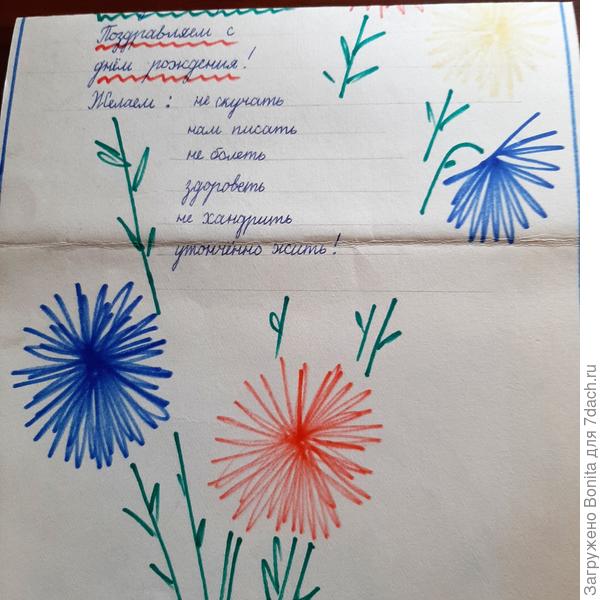 Поздравляем с
днём рождения!
Желаем: не скучать
нам писать
не болеть
здороветь
не хандрить
утончённо жить!
Загружено Bonita для 7dach.ru